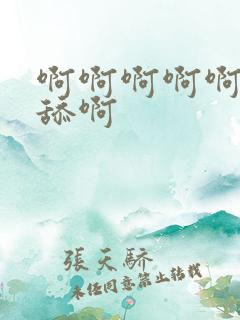 啊啊啊啊啊
舔啊
張天驕
未經同意禁止轉載